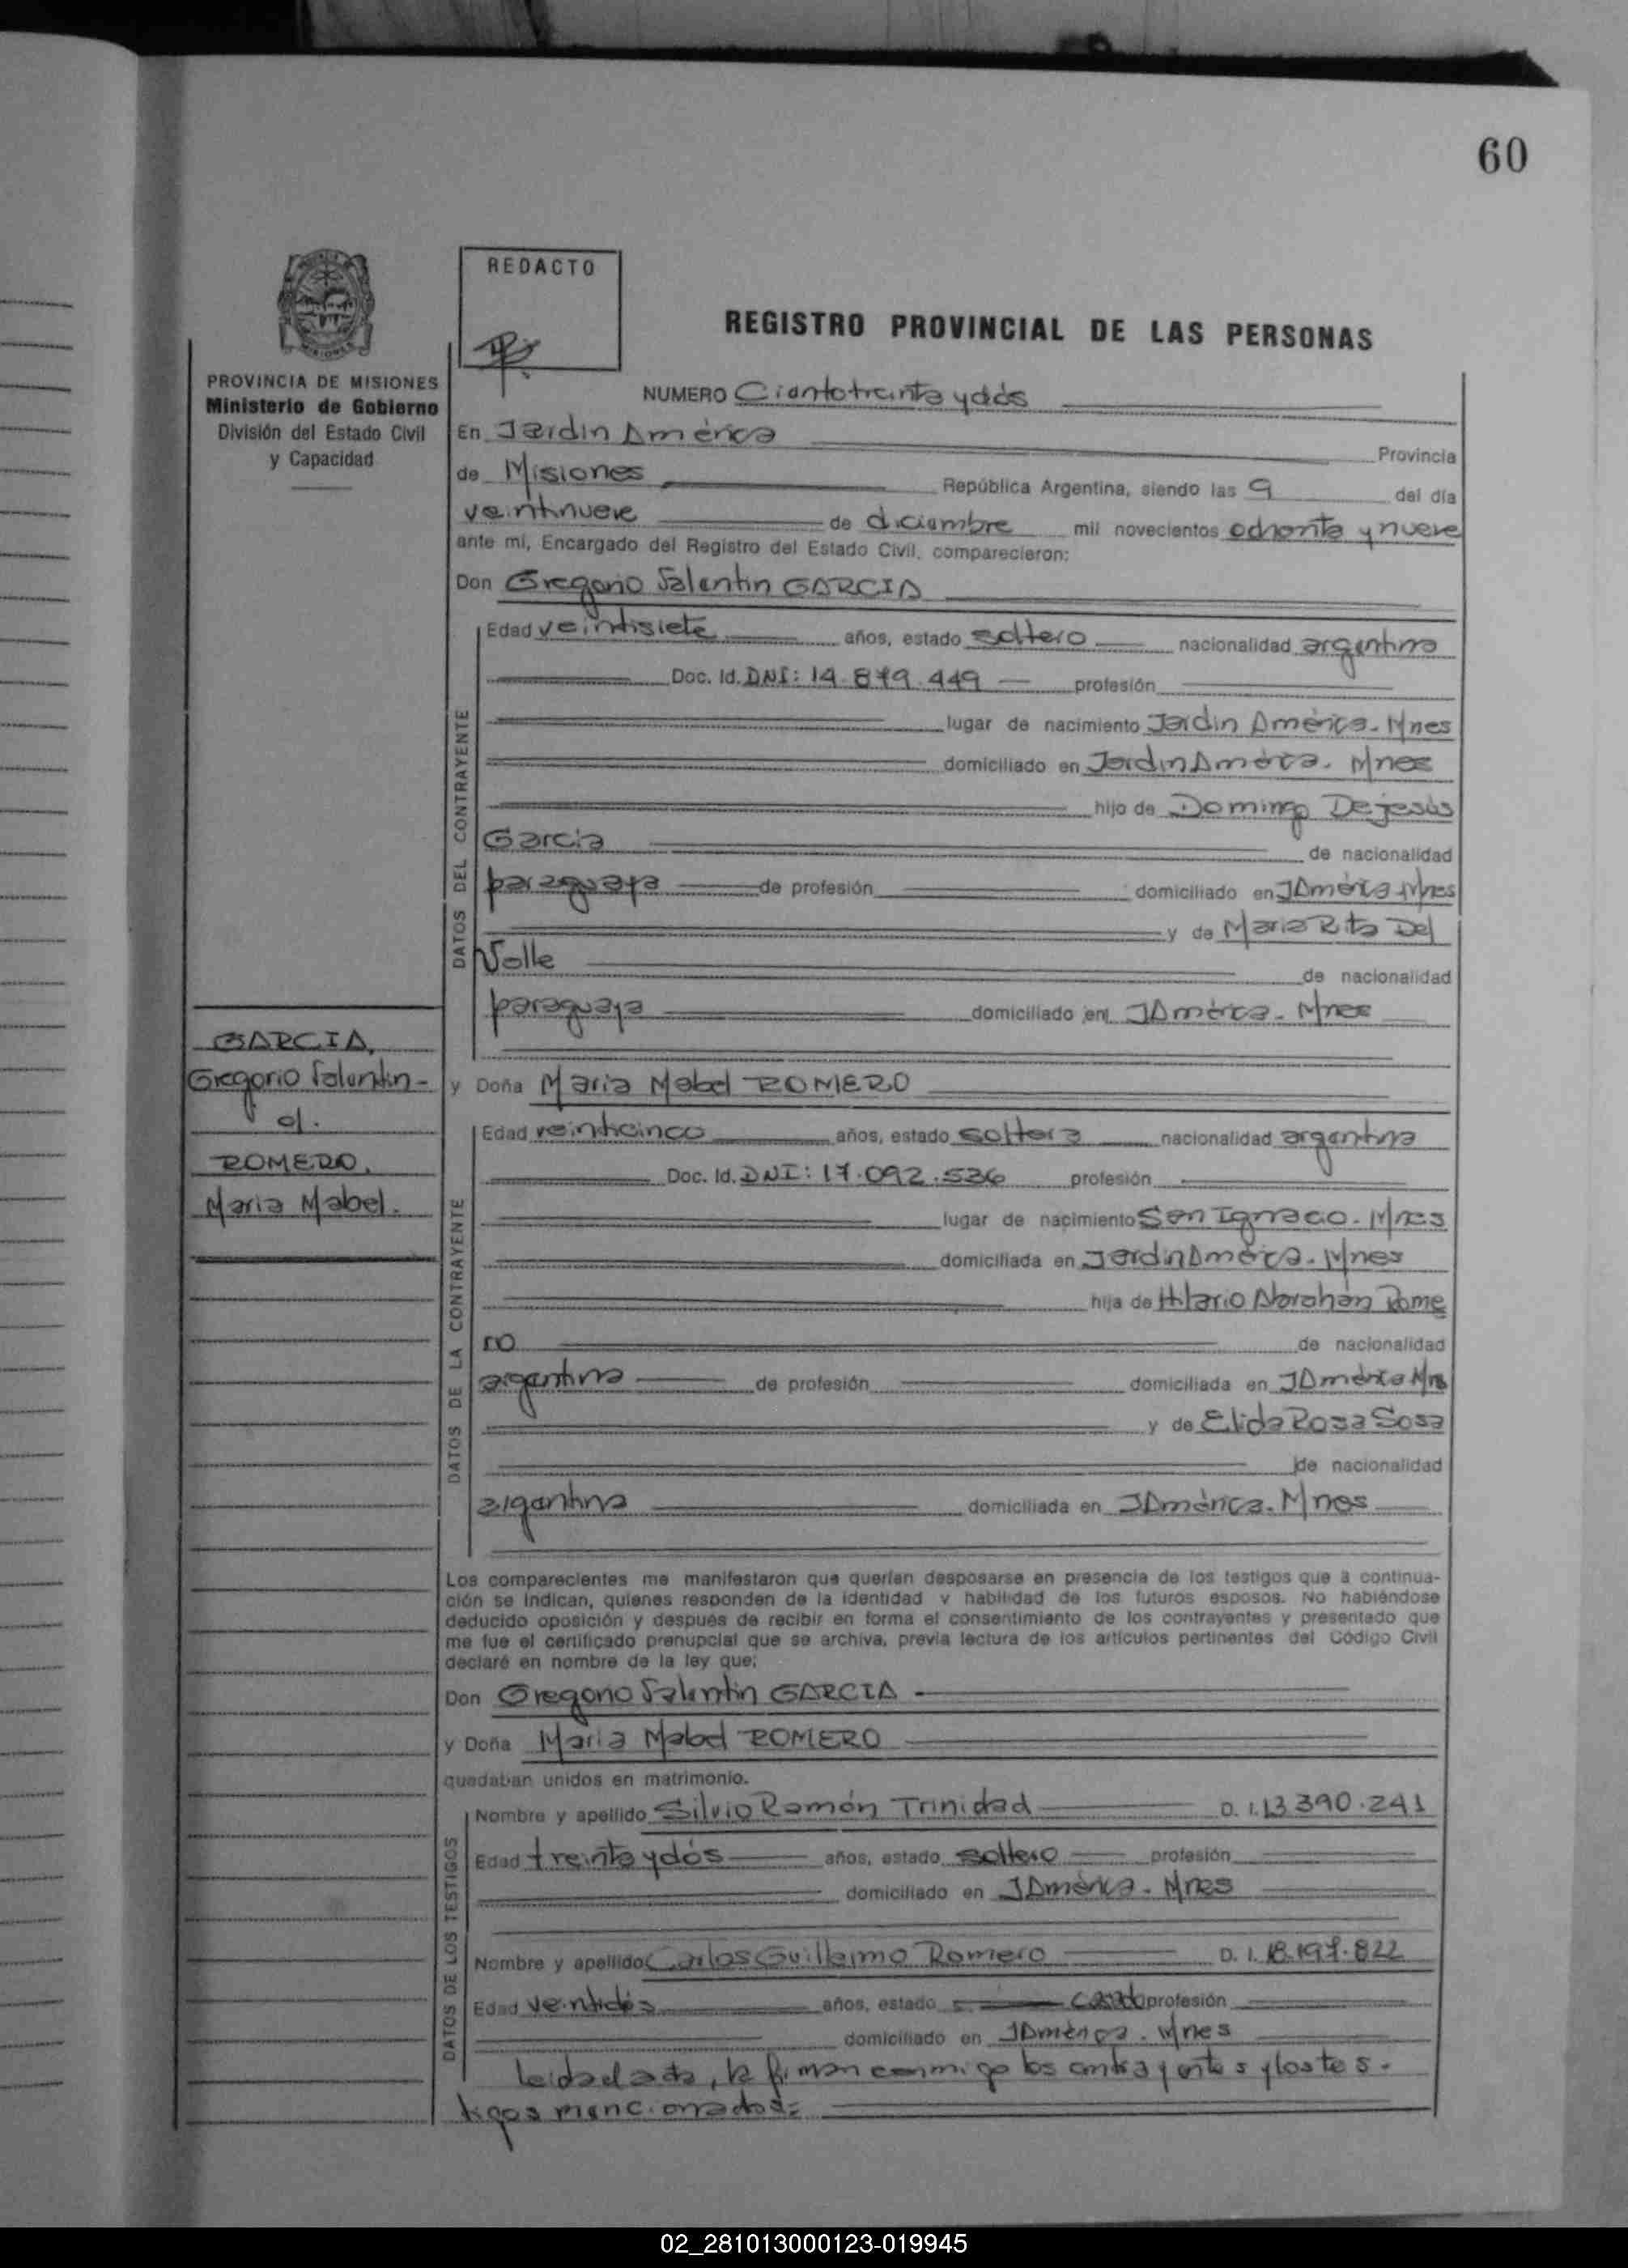 60
REDACTO
REGISTRO PROVINCIAL DE LAS PERSONAS
PROVINCIA DE MISIONES
Ministerio de Gobierno
División del Estado Civil
y Capacidad
NUMERO Ciento treinta y dós
En Jardín América Provincia
de Misiones República Argentina, siendo las 9 del día
veintinueve de diciembre mil novecientos ochenta y nueve
ante mí, Encargado del Registro del Estado Civil, comparecieron:
Don Gregorio Valentin GARCIA
DATOS DEL CONTRAYENTE
Edad veintisiete años, estado soltero nacionalidad argentina
Doc. Id. DNI: 14.879.449 profesión
lugar de nacimiento Jardín América. Mnes
domiciliado en Jardín América. Mnes
hijo de Domingo Dejesús
Garcia de nacionalidad
paraguaya de profesión domiciliado en JAmérica Mnes
y de Maria Rita Del
Valle de nacionalidad
paraguaya domiciliado en JAmérica. Mnes
GARCIA,
Gregorio Valentin -
c/.
ROMERO,
Maria Mabel.
y Doña Maria Mabel ROMERO
DATOS DE LA CONTRAYENTE
Edad veinticinco años, estado soltera nacionalidad argentina
Doc. Id. DNI: 17.092.536 profesión
lugar de nacimiento San Ignacio. Mnes
domiciliada en Jardín América. Mnes
hija de Hilario Abrahán Rome
ro de nacionalidad
argentina de profesión domiciliada en JAmérica Mns
y de Elida Rosa Sosa
de nacionalidad
argentina domiciliada en JAmérica. Mnes
Los comparecientes me manifestaron que querían desposarse en presencia de los testigos que a continua-
ción se indican, quienes responden de la identidad y habilidad de los futuros esposos. No habiéndose
deducido oposición y después de recibir en forma el consentimiento de los contrayentes y presentado que
me fue el certificado prenupcial que se archiva, previa lectura de los artículos pertinentes del Código Civil
declaré en nombre de la ley que:
Don Gregorio Valentin GARCIA
y Doña Maria Mabel ROMERO
quedaban unidos en matrimonio.
DATOS DE LOS TESTIGOS
Nombre y apellido Silvio Ramón Trinidad D. I. 13.390.241
Edad treinta y dós años, estado soltero profesión
domiciliado en JAmérica. Mnes
Nombre y apellido Carlos Guillermo Romero D. I. 18.197.822
Edad veintidós años, estado casado profesión
domiciliado en JAmérica. Mnes
Leida el acta, la firman conmigo los contrayentes y los tes-
tigos mencionados:
02_281013000123-019945